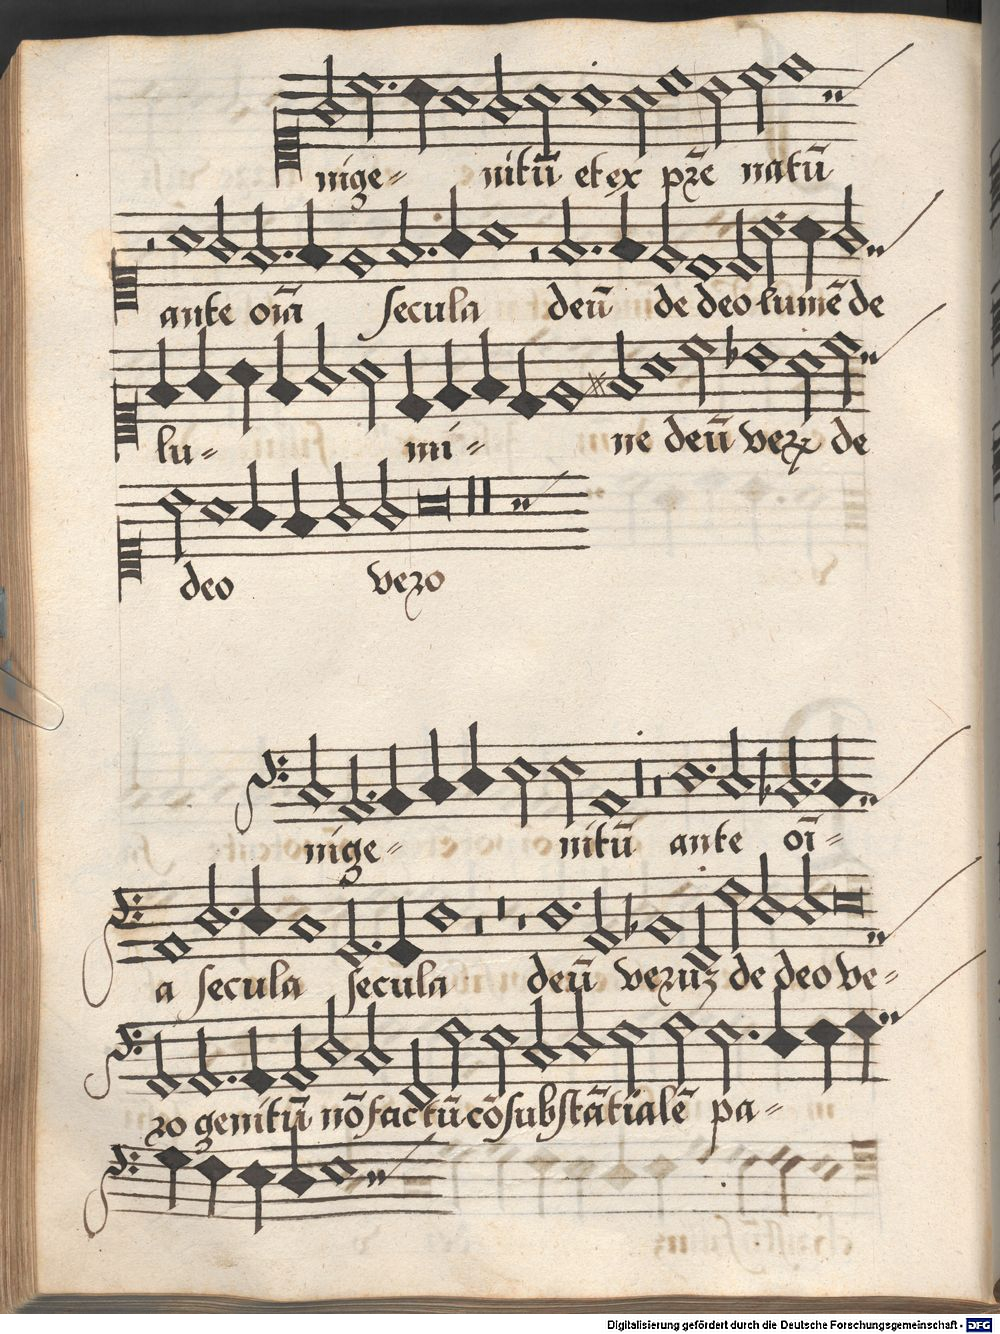 nige- nitū et ex pr̄e natū
ante oīa secula deū de deo lumē de
lu- mi- ne deū verū de
deo vero
nige- nitū ante oī-
a secula secula deū veruz de deo ve-
ro genitū nō factū cōsubstātialē pa-
Digitalisierung gefördert durch die Deutsche Forschungsgemeinschaft - DFG